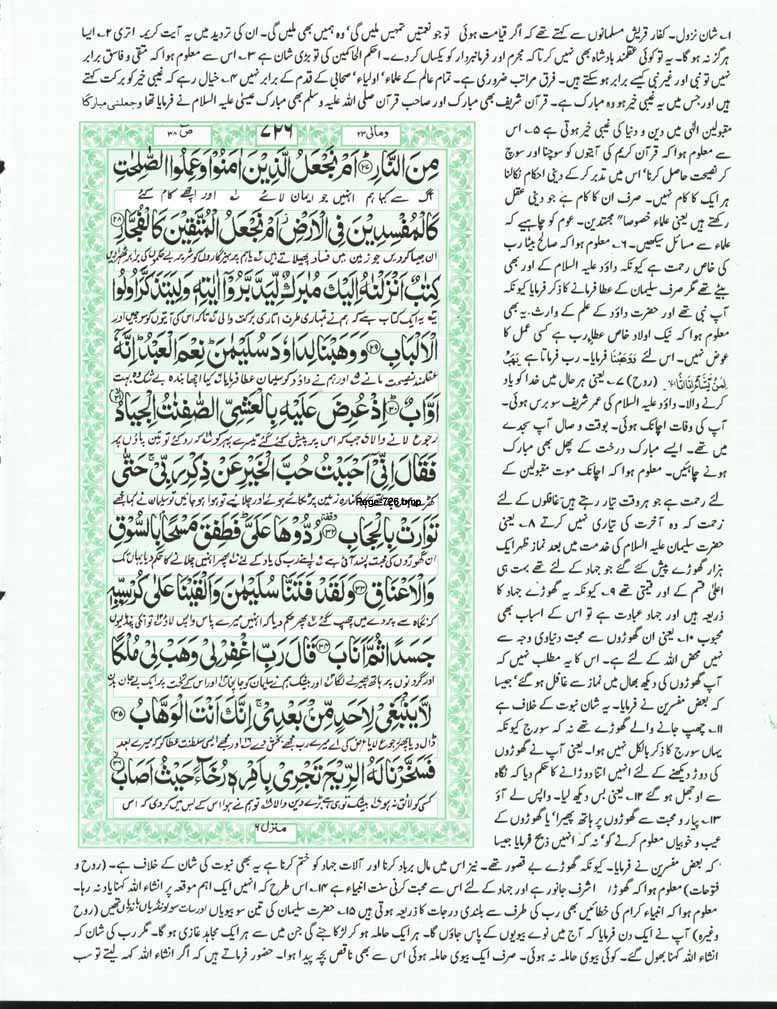 ۱۔ شان نزول۔ کفار قریش مسلمانوں سے کہتے تھے کہ اگر قیامت ہوئی تو جو نعمتیں تمہیں ملیں گی' وہ ہمیں بھی ملیں گی۔ ان کی تردید میں یہ آیت کریمہ اتری ۲۔ ایسا
ہرگز نہ ہو گا۔ یہ تو کوئی عقلمند بادشاہ بھی نہیں کرتا کہ مجرم اور فرمانبردار کو یکساں کر دے۔ احکم الحاکمین کی تو بڑی شان ہے ۳۔ اس سے معلوم ہوا کہ متقی و فاسق برابر
نہیں تو نبی اور غیر نبی کیسے برابر ہو سکتے ہیں۔ فرق مراتب ضروری ہے۔ تمام عالم کے علماء' اولیاء' صحابی کے قدم کے برابر نہیں ۴۔ خیال رہے کہ غیبی خیر کو برکت کہتے
ہیں اور جس میں یہ غیبی خیر ہو وہ مبارک ہے۔ قرآن شریف بھی مبارک اور صاحب قرآن صلی اللہ علیہ وسلم بھی مبارک عیسیٰ علیہ السلام نے فرمایا تھا وجعلنی مبارکا
ومالی ۲۳
۷۲۶
ص ۳۸
مِنَ النَّارِ ۲۷ اَمْ نَجْعَلُ الَّذِیْنَ اٰمَنُوْا وَعَمِلُوا الصّٰلِحٰتِ
آگ سے کیا ہم انہیں جو ایمان لائے اور اچھے کام کئے
کَالْمُفْسِدِیْنَ فِی الْاَرْضِ اَمْ نَجْعَلُ الْمُتَّقِیْنَ کَالْفُجَّارِ ۲۸
ان جیسا کر دیں جو زمین میں فساد پھیلاتے ہیں یا ہم پرہیزگاروں کو شریر بے حکموں کے برابر ٹھہرا دیں
کِتٰبٌ اَنْزَلْنٰهُ اِلَیْكَ مُبٰرَكٌ لِّیَدَّبَّرُوْۤا اٰیٰتِهٖ وَلِیَتَذَكَّرَ اُولُوا
یہ ایک کتاب ہے کہ ہم نے تمہاری طرف اتاری برکت والی تاکہ اس کی آیتوں کو سوچیں اور
الْاَلْبَابِ ۲۹ وَوَهَبْنَا لِدَاوٗدَ سُلَیْمٰنَ نِعْمَ الْعَبْدُ اِنَّهٗۤ
عقلمند نصیحت مانیں اور ہم نے داؤد کو سلیمان عطا فرمایا کیا اچھا بندہ بے شک وہ بہت
اَوَّابٌ ۳۰ اِذْ عُرِضَ عَلَیْهِ بِالْعَشِیِّ الصّٰفِنٰتُ الْجِیَادُ ۳۱
رجوع لانے والا جب کہ اس پر پیش کئے گئے تیسرے پہر کو کہ روکئے تو تین پاؤں پر
فَقَالَ اِنِّیْۤ اَحْبَبْتُ حُبَّ الْخَیْرِ عَنْ ذِكْرِ رَبِّیْ حَتّٰی
Page-726.bmp
تَوَارَتْ بِالْحِجَابِ ۳۲ رُدُّوْهَا عَلَیَّ فَطَفِقَ مَسْحًۢا بِالسُّوْقِ
وَالْاَعْنَاقِ ۳۳ وَلَقَدْ فَتَنَّا سُلَیْمٰنَ وَاَلْقَیْنَا عَلٰی كُرْسِیِّهٖ
جَسَدًا ثُمَّ اَنَابَ ۳۴ قَالَ رَبِّ اغْفِرْ لِیْ وَهَبْ لِیْ مُلْكًا
لَّا یَنْۢبَغِیْ لِاَحَدٍ مِّنْۢ بَعْدِیْ اِنَّكَ اَنْتَ الْوَهَّابُ ۳۵
فَسَخَّرْنَا لَهُ الرِّیْحَ تَجْرِیْ بِاَمْرِهٖ رُخَآءً حَیْثُ اَصَابَ ۳۶
منزل ۶
مقبولین الٰہی میں دین و دنیا کی غیبی خیر ہوتی ہے ۵۔ اس
سے معلوم ہوا کہ قرآن کریم کی آیتوں کو سوچنا اور سوچ
کر نصیحت حاصل کرنا' اس میں تدبر کر کے دینی احکام نکالنا
ہر ایک کا کام نہیں۔ صرف ان کا کام ہے جو دینی عقل
رکھتے ہیں یعنی علماء خصوصا" مجتہدین۔ عوام کو چاہیے کہ
علماء سے مسائل سیکھیں۔ ۶۔ معلوم ہوا کہ صالح بیٹا رب
کی خاص رحمت ہے کیونکہ داؤد علیہ السلام کے اور بھی
بیٹے تھے مگر صرف سلیمان کے عطا فرمانے کا ذکر فرمایا کیونکہ
آپ نبی تھے اور حضرت داؤد کے علم کے وارث۔ یہ بھی
معلوم ہوا کہ نیک اولاد خاص عطا رب ہے کسی عمل کا
عوض نہیں۔ اس لئے وَوَهَبْنَا فرمایا۔ رب فرماتا ہے یَهَبُ
لِمَنْ یَّشَآءُ اِنَاثًا (روح) ۷۔ یعنی ہر حال میں خدا کو یاد
کرنے والا۔ داؤد علیہ السلام کی عمر شریف سو برس ہوئی۔
آپ کی وفات اچانک ہوئی۔ بوقت و صال آپ سجدے
میں تھے۔ ایسے مبارک درخت کے پھل بھی مبارک
ہونے چاہئیں۔ معلوم ہوا کہ اچانک موت مقبولین کے
لئے رحمت ہے جو ہر وقت تیار رہتے ہیں غافلوں کے لئے
زحمت کہ وہ آخرت کی تیاری نہیں کرتے ۸۔ یعنی
حضرت سلیمان علیہ السلام کی خدمت میں بعد نماز ظہر ایک
ہزار گھوڑے پیش کئے گئے جو جہاد کے لئے تھے بہت ہی
اعلیٰ قسم کے اور قیمتی تھے ۹۔ کیونکہ یہ گھوڑے جہاد کا
ذریعہ ہیں اور جہاد عبادت ہے تو اس کے اسباب بھی
محبوب ۱۰۔ یعنی ان گھوڑوں سے محبت دنیاوی وجہ سے
نہیں محض اللہ کے لئے ہے۔ اس کا یہ مطلب نہیں کہ
آپ گھوڑوں کی دیکھ بھال میں نماز سے غافل ہو گئے' جیسا
کہ بعض مفسرین نے فرمایا۔ یہ شان نبوت کے خلاف ہے
۱۱۔ چھپ جانے والے گھوڑے تھے نہ کہ سورج کیونکہ
یہاں سورج کا ذکر بالکل نہیں ہوا۔ یعنی آپ نے گھوڑوں
کی دوڑ دیکھنے کے لئے انہیں اتنا دوڑانے کا حکم دیا کہ نگاہ
سے اوجھل ہو گئے ۱۲۔ یعنی بس دیکھ لیا۔ واپس لے آؤ
۱۳۔ پیار و محبت سے گھوڑوں پر ہاتھ پھیرا' یا گھوڑوں کے
عیب و خوبیاں معلوم کرنے کو' نہ کہ انہیں ذبح فرمایا جیسا
کہ بعض مفسرین نے فرمایا۔ کیونکہ گھوڑے بے قصور تھے۔ نیز اس میں مال برباد کرنا اور آلات جہاد کو ختم کرنا ہے یہ بھی نبوت کی شان کے خلاف ہے۔ (روح و
فتوحات) معلوم ہوا کہ گھوڑا اشرف جانور ہے اور جہاد کے لئے اس سے محبت کرنی سنت انبیاء ہے ۱۴۔ اس طرح کہ انہیں ایک اہم موقعہ پر انشاء اللہ کہنا یاد نہ رہا۔
معلوم ہوا کہ انبیاء کرام کی خطائیں بھی رب کی طرف سے بلندی درجات کا ذریعہ ہوتی ہیں ۱۵۔ حضرت سلیمان کی تین سو بیویاں اور سات سو لونڈیاں باندیاں تھیں (روح
وغیرہ) آپ نے ایک دن فرمایا کہ آج میں نوے بیویوں کے پاس جاؤں گا۔ ہر ایک حاملہ ہو کر لڑکا جنے گی جن میں سے ہر ایک مجاہد غازی ہو گا۔ مگر رب کی شان کہ
انشاء اللہ کہنا بھول گئے۔ کوئی بیوی حاملہ نہ ہوئی۔ صرف ایک بیوی حاملہ ہوئی اس سے بھی ناقص بچہ پیدا ہوا۔ حضور فرماتے ہیں کہ اگر انشاء اللہ کہہ لیتے تو سب